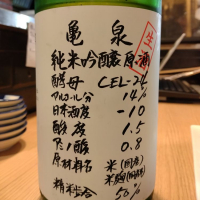 亀泉
生
純米吟醸原酒
酵母 CEL-24
アルコール分 14%
日本酒度 -10
酸度 1.5
アミノ酸 0.8
原材料名 米(国産)
米麹(国産米)
精米歩合 50%